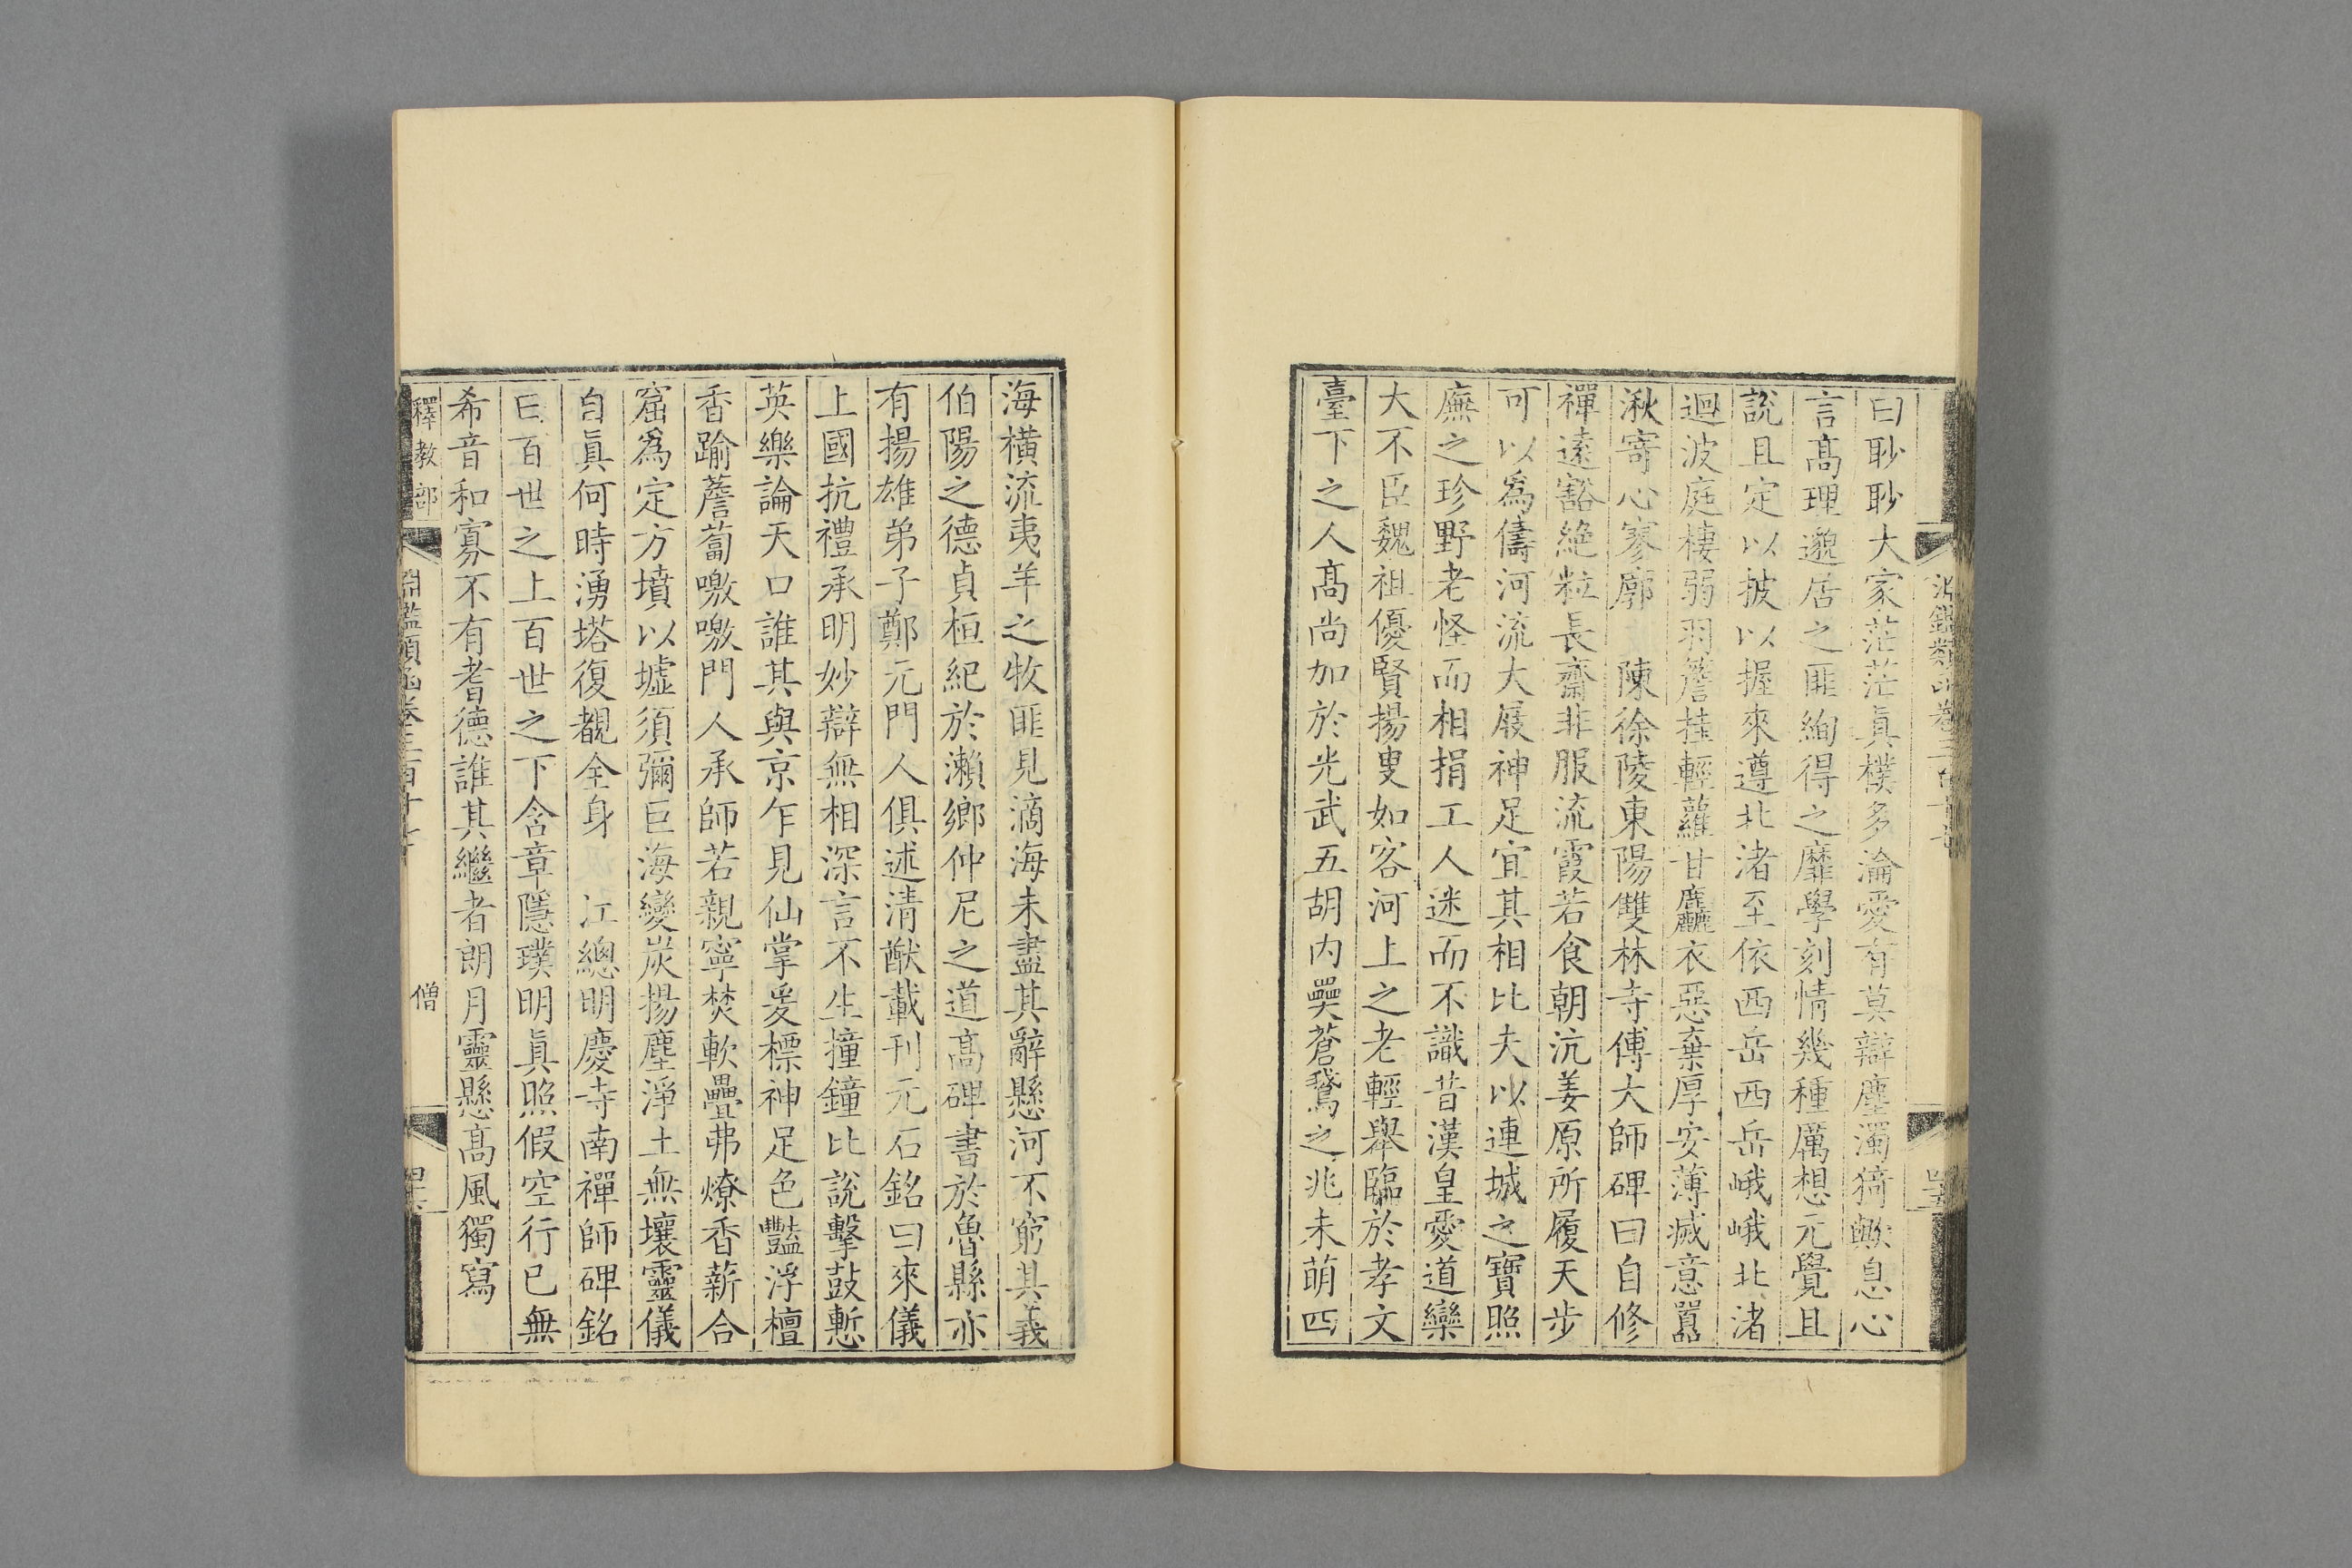 曰眇眇大家茫茫眞樸多淪愛有莫辯塵濁猗歟息心
言高理邈居之匪絢得之靡學刻情幾種厲想元覺且
說且定以披以握來遵北渚至依西岳西岳峨峨北渚
迴波庭棲弱羽簷挂輕蘿甘麤衣惡棄厚安薄滅意囂
湫寄心寥廓 陳徐陵東陽雙林寺傅大師碑曰自修
禪遠豁絶粒長齋非服流霞若食朝沆姜原所履天步
可以爲儔河流大屐神足宜其相比夫以連城之寶照
廡之珍野老怪而相捐工人迷而不識昔漢皇愛道欒
大不臣魏祖優賢揚叟如客河上之老輕舉臨於孝文
臺下之人高尚加於光武五胡内奰蒼鵞之兆未萌四
海横流夷羊之牧匪見滴海未盡其辭懸河不窮其義
伯陽之德貞桓紀於瀨鄉仲尼之道高碑書於魯縣亦
有揚雄弟子鄭元門人俱述清猷載刊元石銘曰來儀
上國抗禮承明妙辯無相深言不生撞鐘比說擊鼓慙
英樂論天口誰其與京乍見仙掌爰標神足色豔浮檀
香踰薝蔔噭噭門人承師若親寧焚軟疊弗燎香薪合
窟爲定方墳以墟須彌巨海變炭揚塵淨土無壤靈儀
自眞何時湧塔復覩全身 江總明慶寺南禪師碑銘
曰百世之上百世之下含章隱璞明眞照假空行已無
希音和寡不有耆德誰其繼者朗月靈懸高風獨寫
釋教部 淵鑑類函卷三百十七 僧